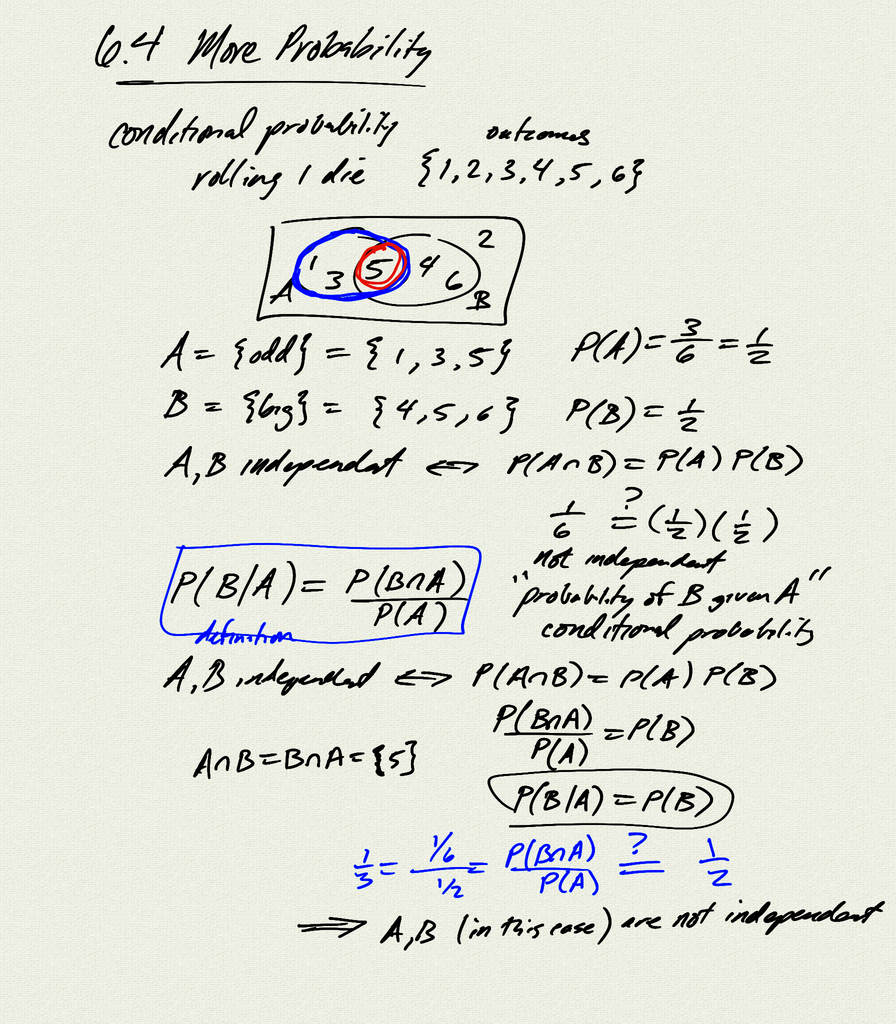 6.4 More Probability
conditional probability
outcomes
rolling 1 die {1, 2, 3, 4, 5, 6}
1 3 5 4 6 2
A B
A = {odd} = {1, 3, 5} P(A) = 3/6 = 1/2
B = {big} = {4, 5, 6} P(B) = 1/2
A, B independent ⟺ P(A∩B) = P(A) P(B)
1/6 ?= (1/2)(1/2)
not independent
P(B|A) = P(B∩A)/P(A) "probability of B given A"
definition conditional probability
A, B independent ⟺ P(A∩B) = P(A) P(B)
P(B∩A)/P(A) = P(B)
A∩B = B∩A = {5}
P(B|A) = P(B)
1/3 = (1/6)/(1/2) = P(B∩A)/P(A) ?= 1/2
⟹ A, B (in this case) are not independent